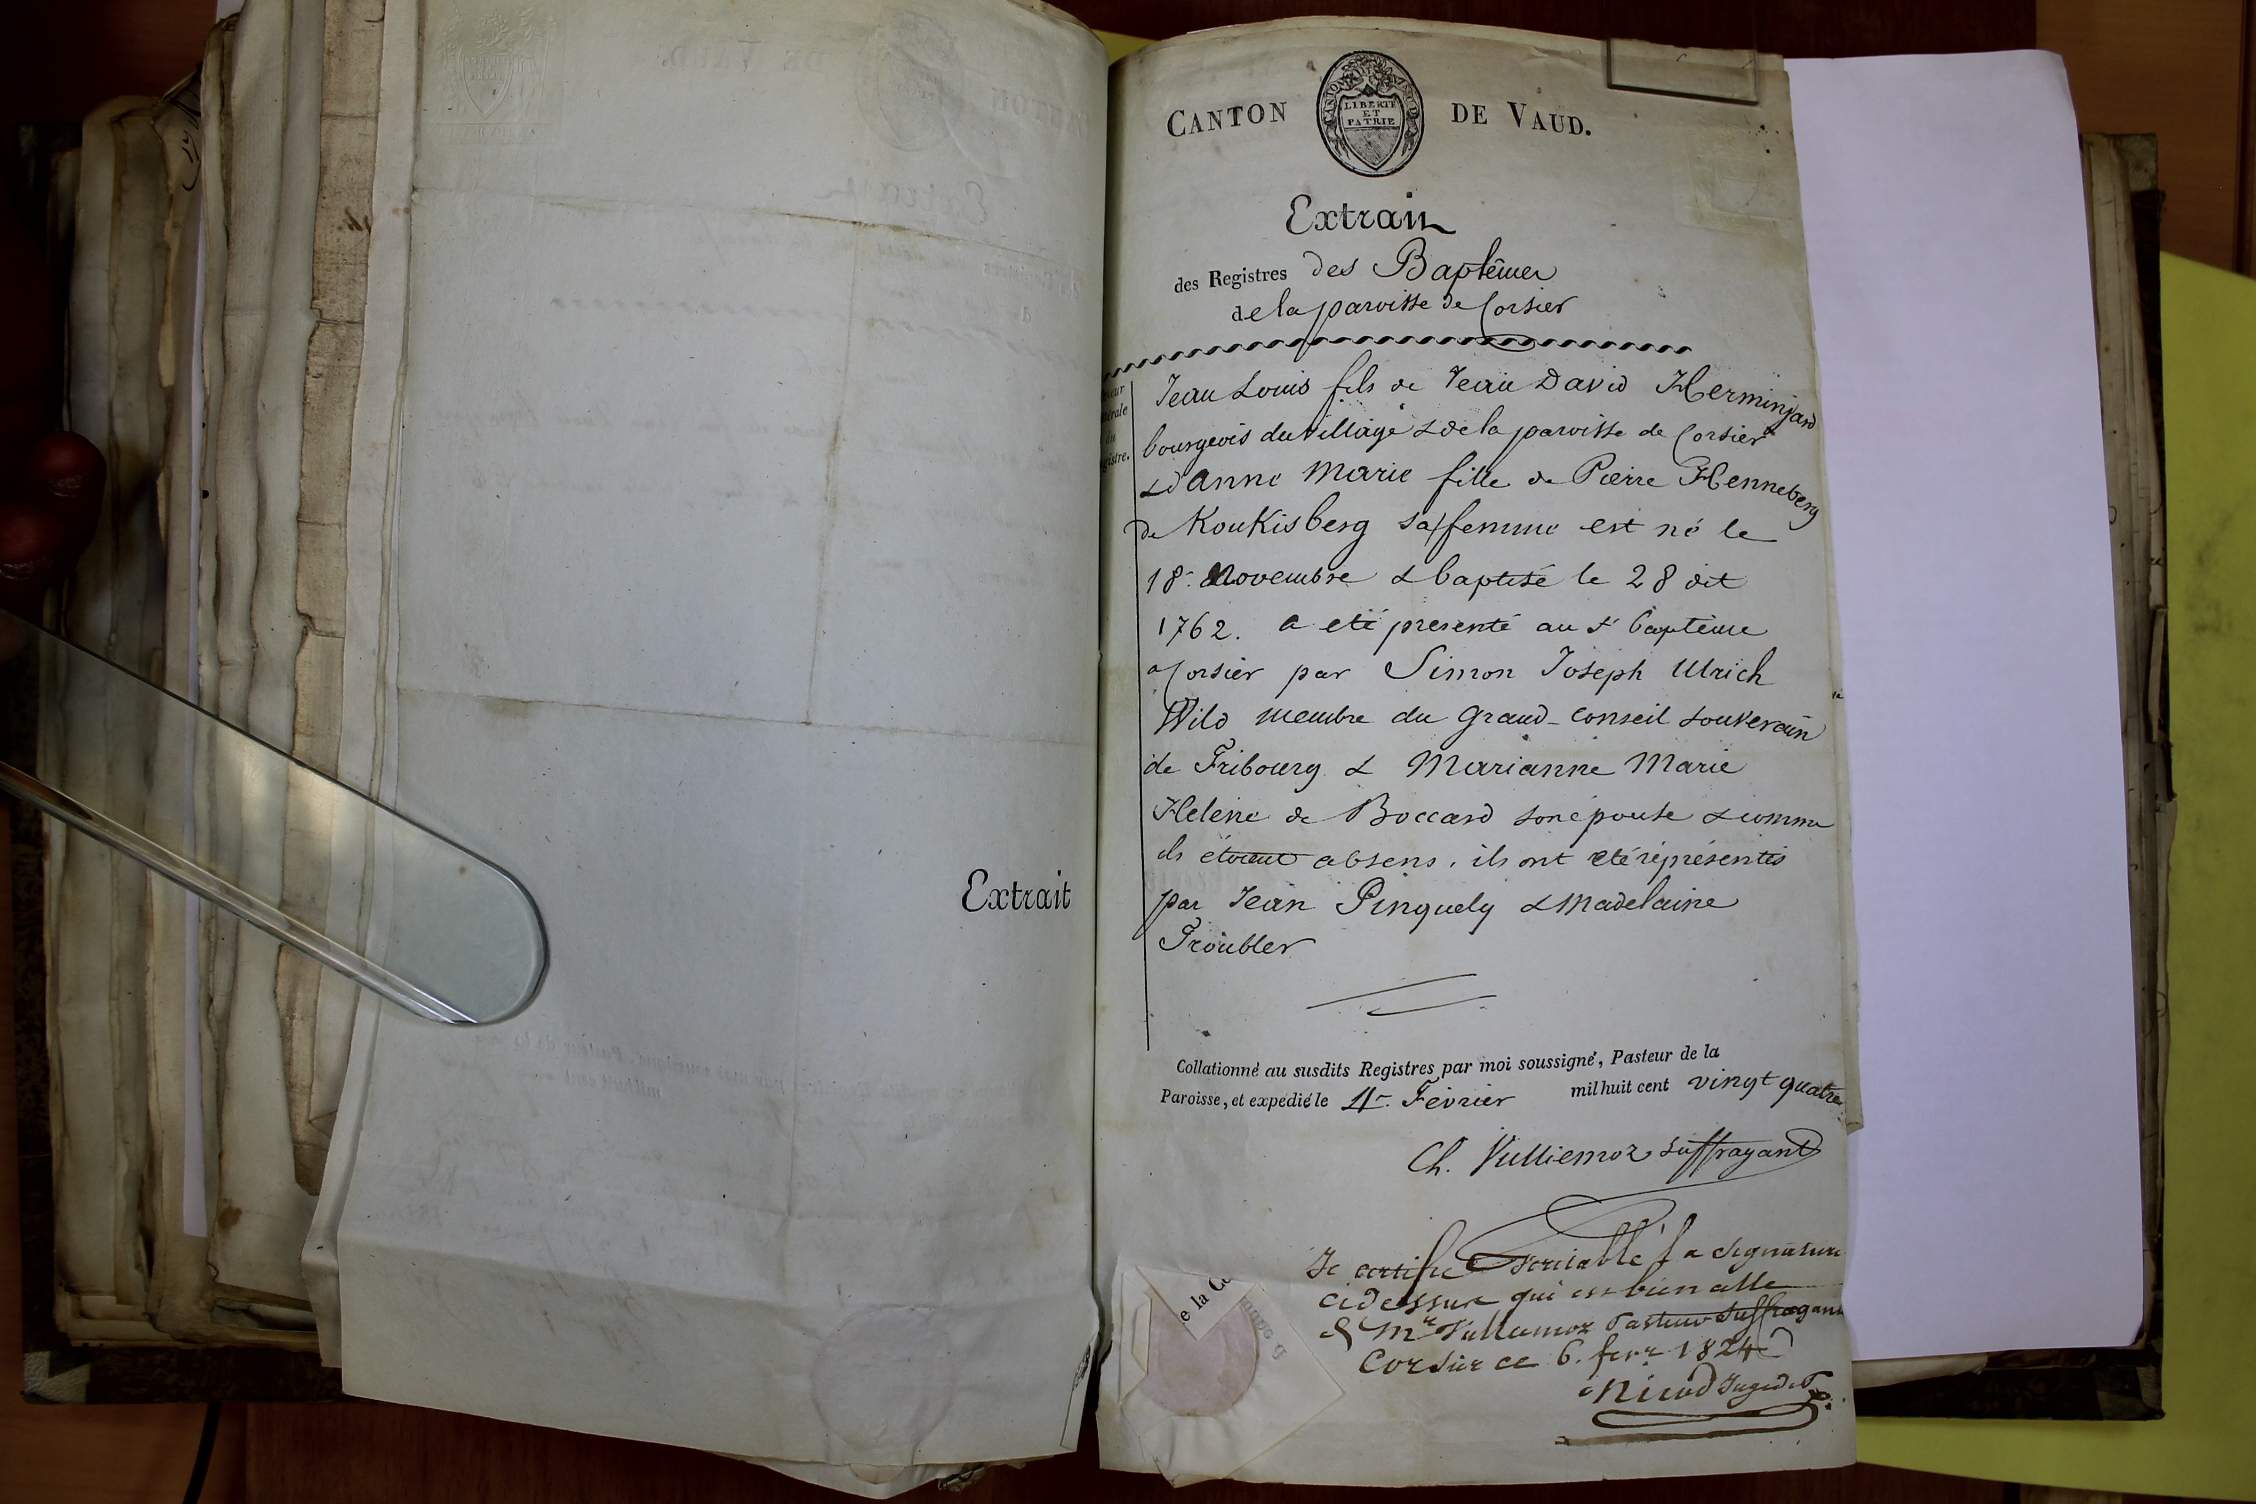 CANTON DE VAUD.
CANTON DE VAUD
LIBERTÉ
ET
PATRIE
Extrait
des Registres des Baptêmes
de la paroisse de Corsier
Teneur
littérale
du
Registre.
Jean Louis fils de Jean David Herminjard
bourgeois du village & de la paroisse de Corsier
& d'Anne Marie fille de Pierre Henneberg
de Koukisberg sa femme est né le
18e Novembre & baptisé le 28 dit
1762. a eté presenté au St baptême
a Corsier par Simon Joseph Ulrich
Wild membre du Grand-Conseil Souverain
de Fribourg & Marianne Marie
Helene de Boccard son épouse & comme
ils étoient absens, ils ont eté réprésentés
par Jean Pinguely & Madelaine
Troubler
Extrait
Collationné au susdits Registres par moi soussigné, Pasteur de la
Paroisse, et expedié le 4e. Fevrier mil huit cent vingt quatre
Ch. Vulliemoz suffragant
Je certifie veritable la signature
ci dessus qui est bien celle
de Mr Vulliemoz Pasteur Suffragant
Corsier ce 6. fevr 1824
Nicod Juge de P.
e la Co